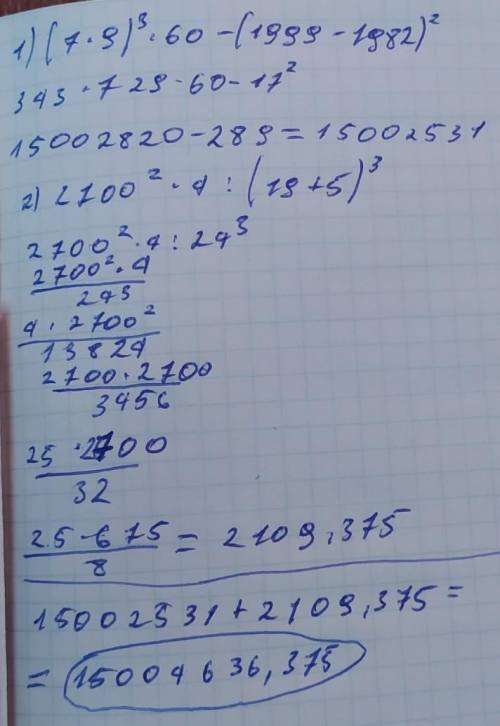 1) (7·9)³·60-(1999-1982)²
343·729·60-17²
15002820-289=15002531
2) 2700²·4:(19+5)³
2700²·4:24³
2700²·4
24³
4·2700²
13824
2700·2700
3456
25·2700
32
25·675
8
= 2109,375
15002531+2109,375=
= 15004636,375